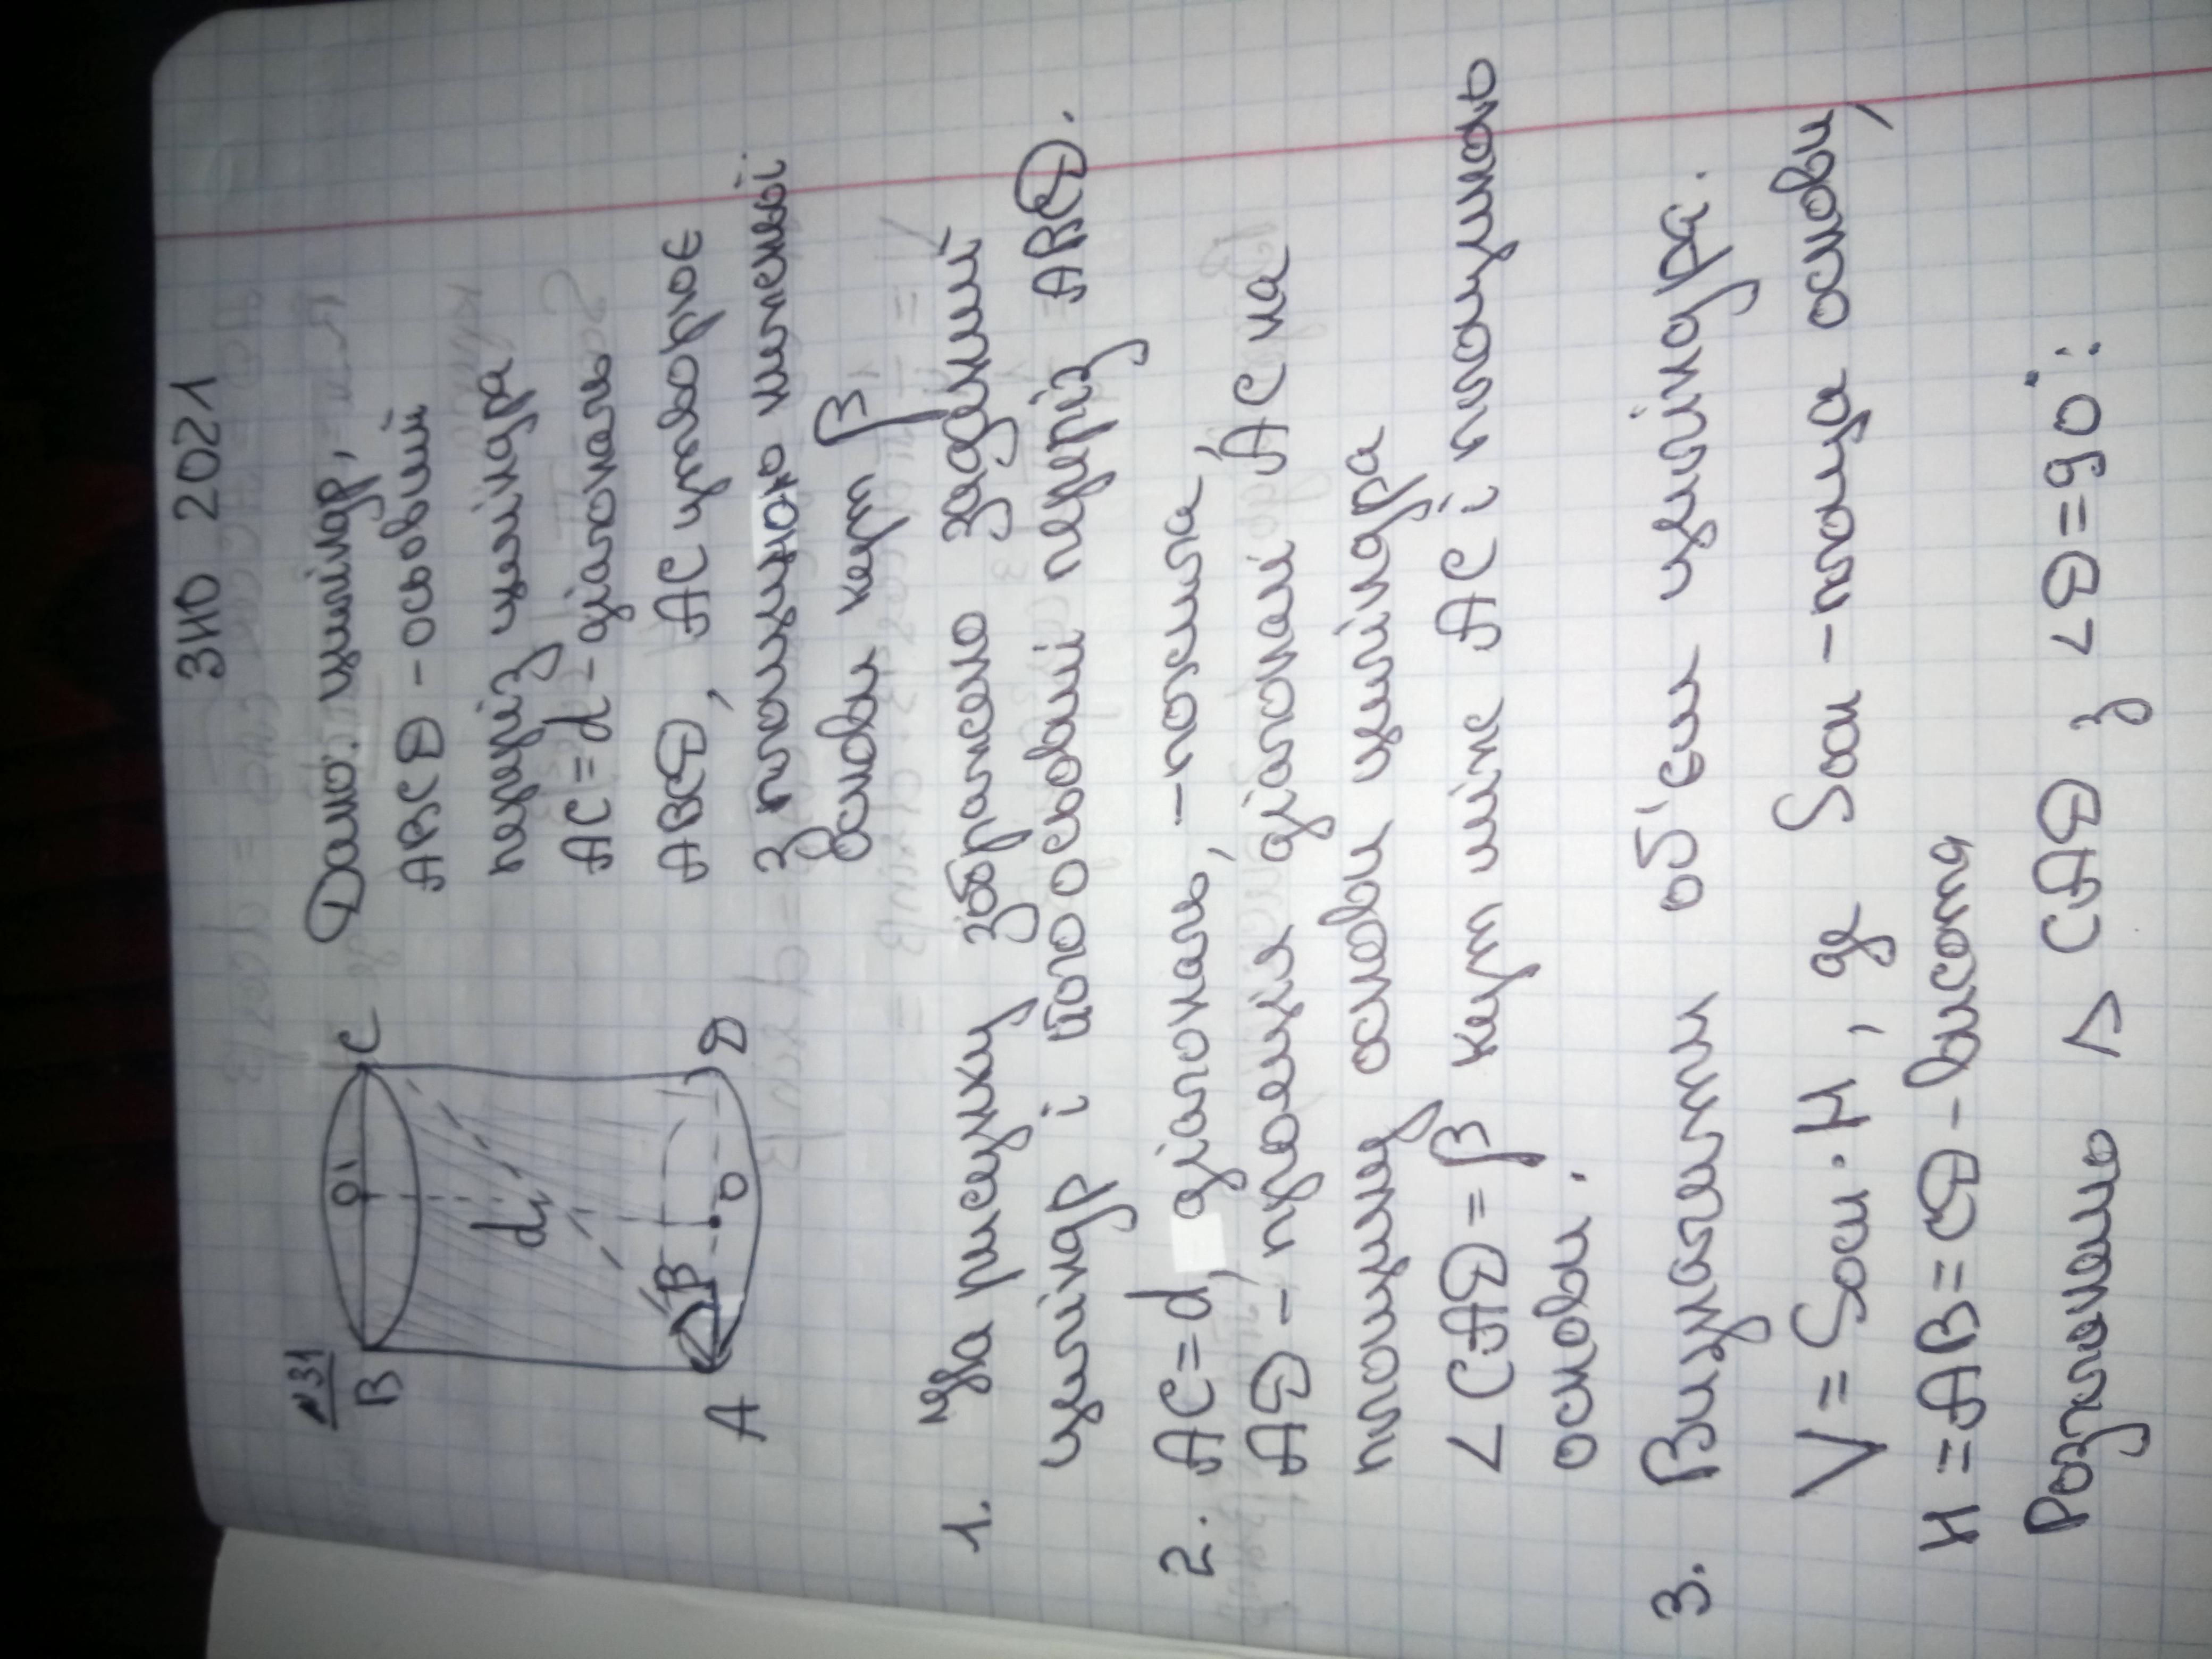 ЗНО 2021
№31
B
C
O₁
d
β
O
A
D
Дано: циліндр,
ABCD - осьовий
переріз циліндра
AC = d - діагональ
ABCD, AC утворює
з площиною нижньої
основи кут β
1. На рисунку зображено заданий
циліндр і його осьовий переріз ABCD.
2. AC = d, діагональ, - похила,
AD - проекція діагоналі AC на
площину основи циліндра
∠CAD = β кут між AC і площиною
основи.
3. Визначити об'єм циліндра.
V = Sосн · H, де Sосн - площа основи,
H = AB = CD - висота
Розглянемо △ CAD з ∠D = 90°: